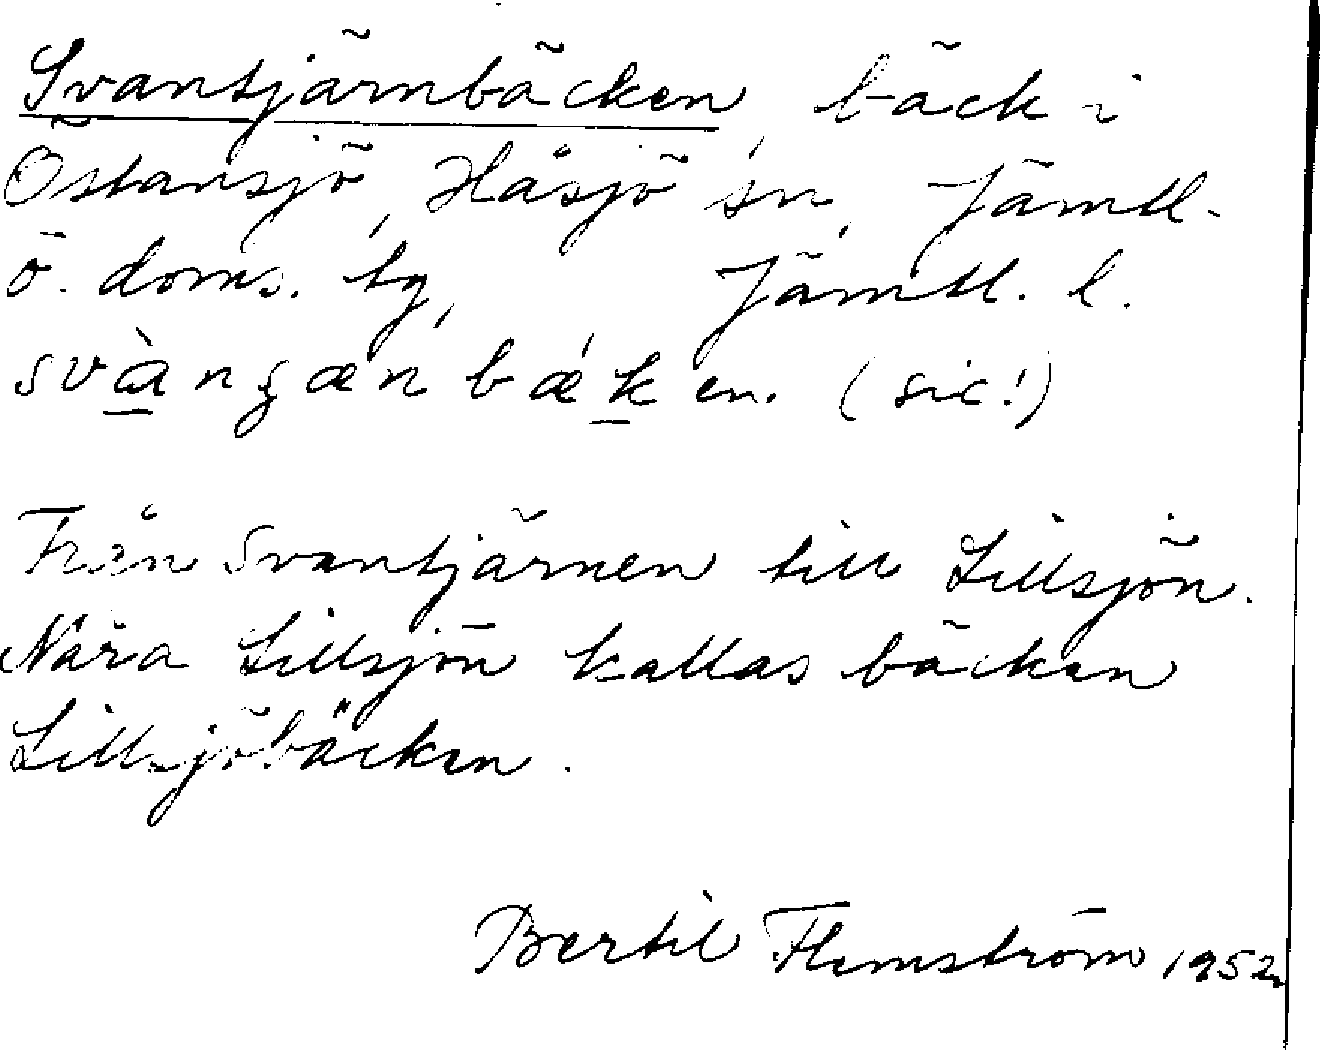 Svantjärnbäcken, bäck i
Östansjö, Håsjö sn, Jämtl.
ö. doms. tg, Jämtl. l.
svàngæn bǽken. (sic!)
Från Svantjärnen till Lillsjön.
Nära Lillsjön kallas bäcken
Lillsjöbäcken.
Bertil Flemström 1952